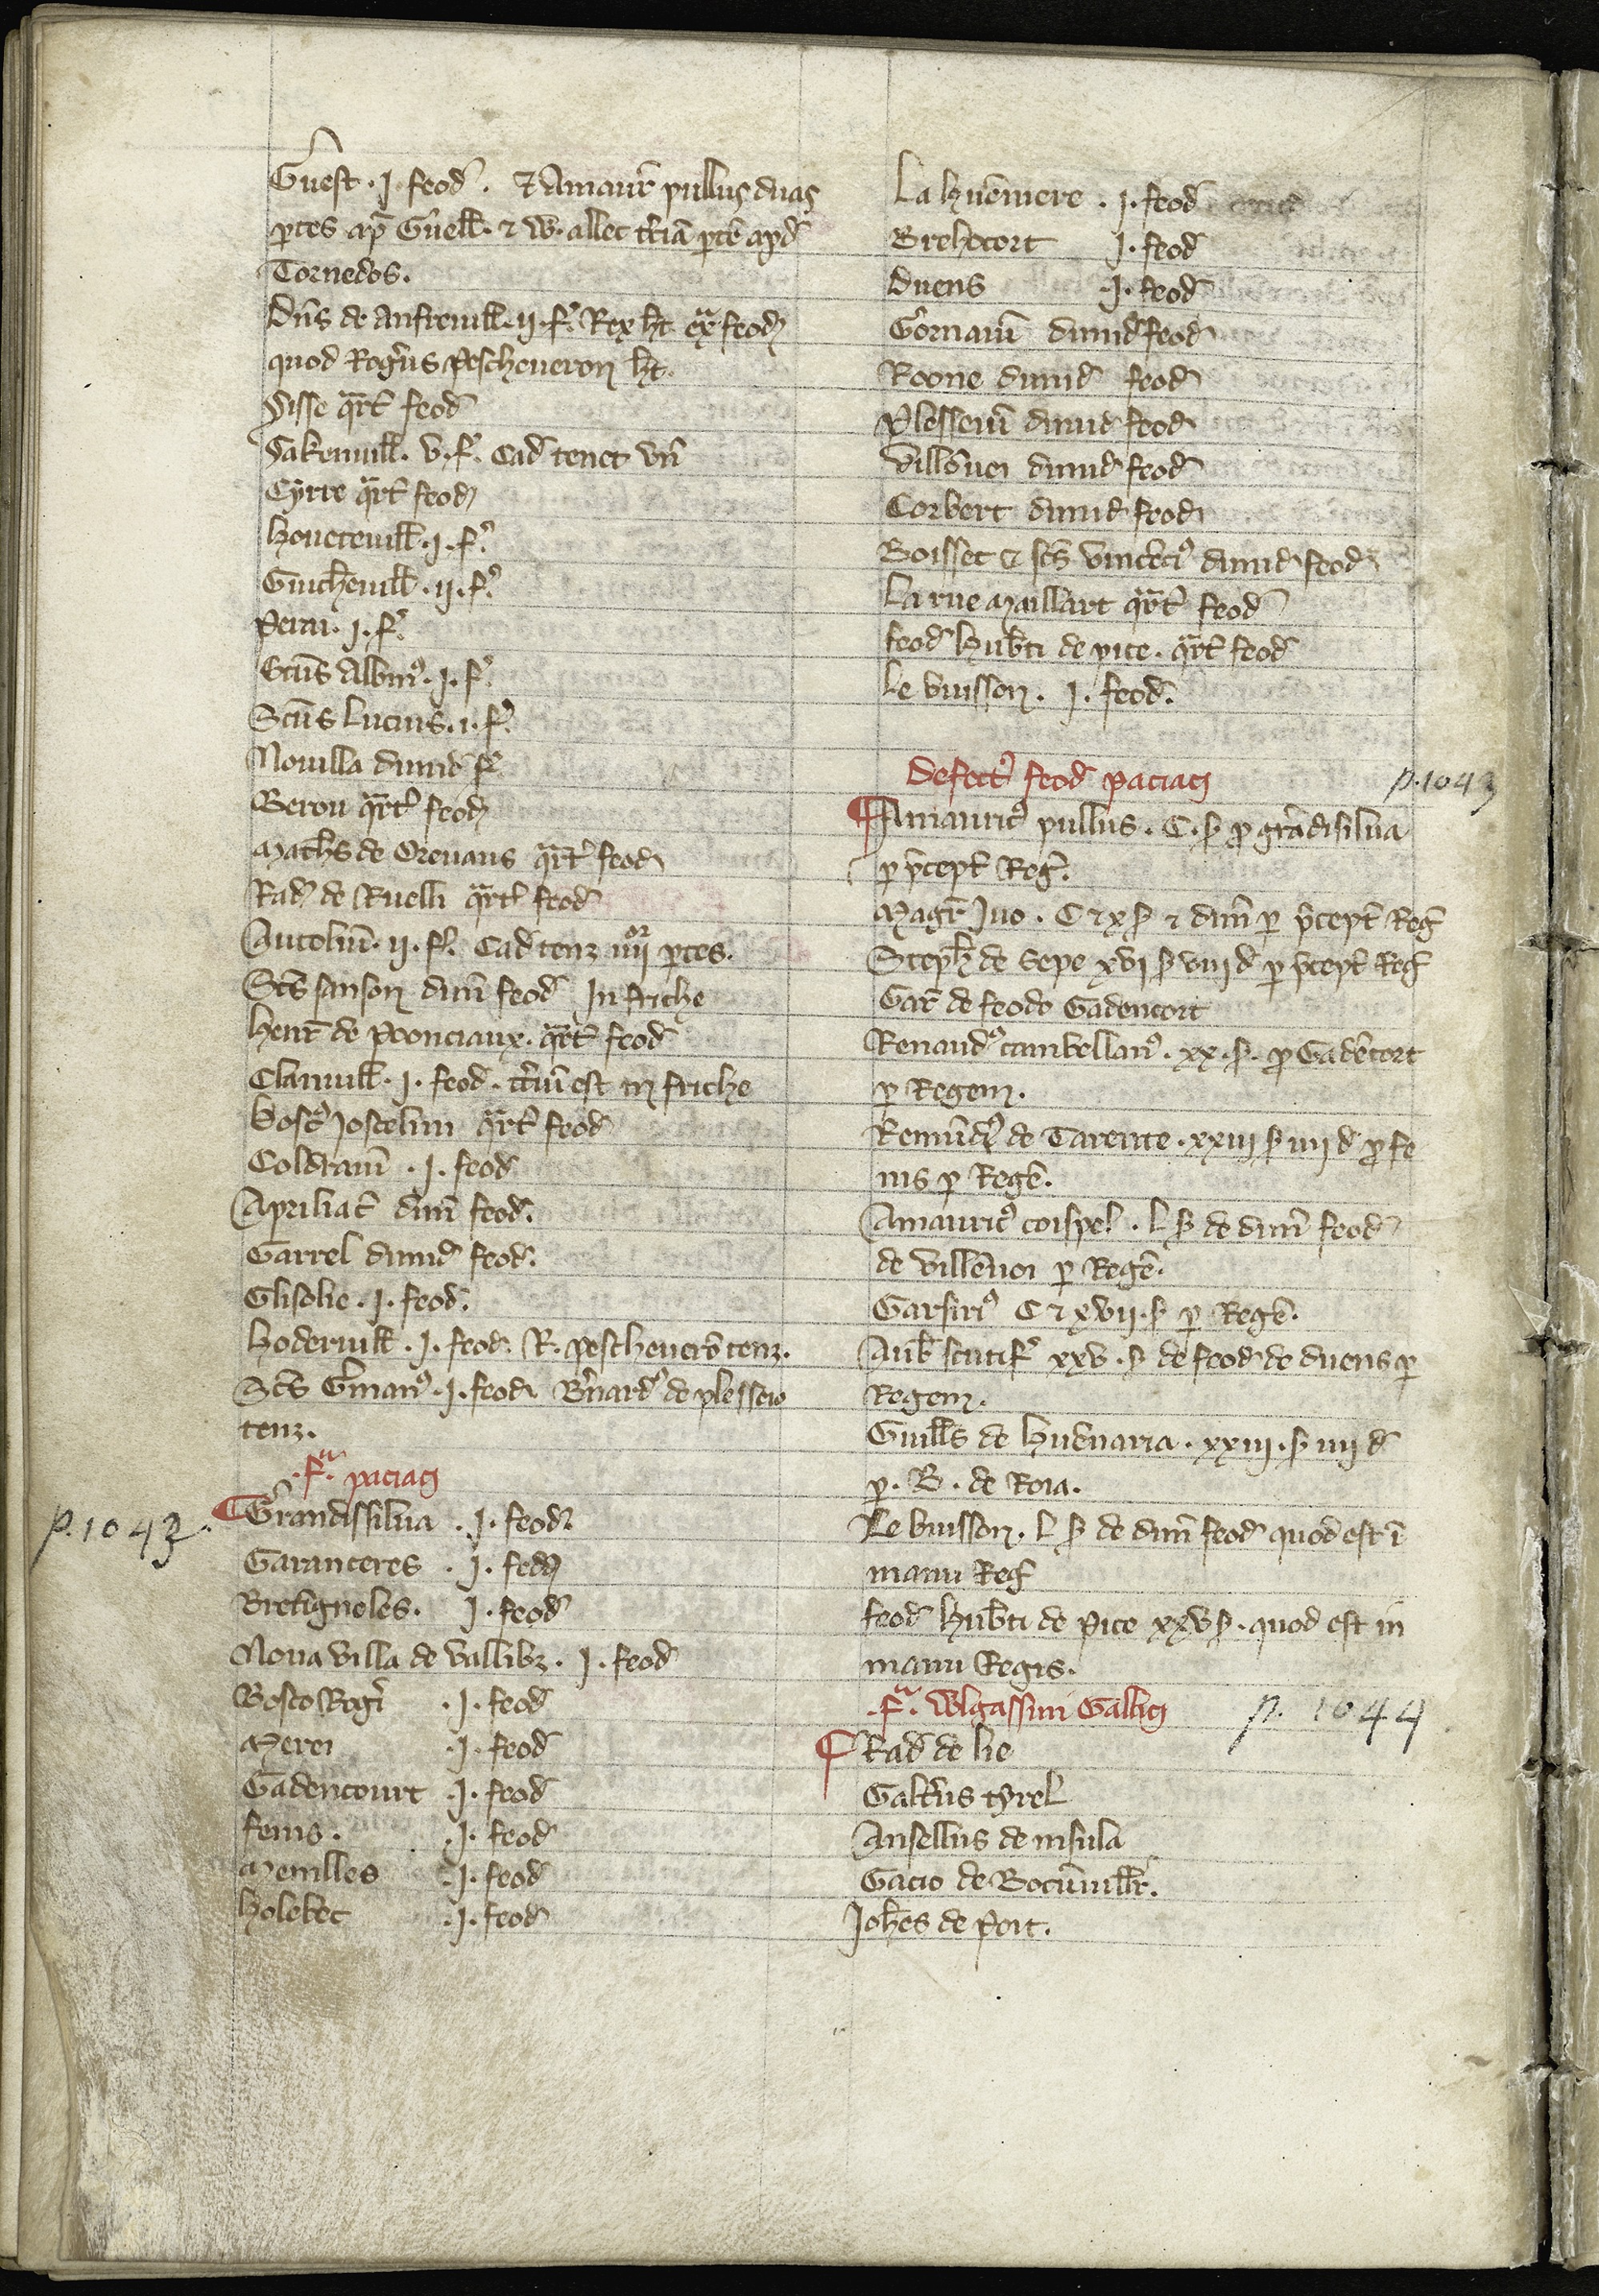 Gūest · I · feod̄ · & Amaur̄ pullus duas
p̄tes ap̄ Guell̄ · & W · allec t̄ciā p̄tē apd̄
Tornedos.
Dn̄s de Anfreuill̄ · II · f̄. Rex ht̄ ex̄ feod̄
quod Roḡus Pescheueron ht̄.
Sisse q̄rt̄ feod̄
Sakenuill̄ · V · f̄. Cad̄ tenet Vn̄
Cyrre q̄rt̄ feod̄
Houeteuill̄ · I · f̄.
Guichēuill̄ · II · f̄.
Perai · I · f̄.
Sctūs Albin⁹ · I · f̄.
Sctūs Lucius · I · f̄.
Nouilla dimid̄ f̄
Berou q̄rt̄ feod̄
Math̄s de Oreuans q̄rt̄ feod̄
Rad̄ de Ruelli q̄rt̄ feod̄
Autoliū · II · f̄. Cad̄ tenȝ IIIIor p̄tes.
Sct̄s sanson dim̄ feod̄ In friche
Henr̄ de Poonciaux · q̄rt̄ feod̄
Clauuill̄ · I · feod̄ · t̄ciū est in friche
Bosc⁹ Joscelini q̄rt̄ feod̄
Coldraiū · I · feod̄
Apriliac̄ dim̄ feod̄.
Garrel dimid̄ feod̄.
Glisolie · I · feod̄.
Hoderuill̄ · I · feod̄. R. Pescheuerō tenȝ.
Sct̄s Ḡman⁹ · I · feod̄ Bn̄ard⁹ de plesseio
tenȝ.
· Fa paciaci
p. 1043. Grandissilua · I · feod̄.
Garanceres · I · fed̄
Bretigneles · I · feod̄
Noua villa de vallibȝ · I · feod̄
Bosco Roḡi · I · feod̄
Merei · I · feod̄
Gadencourt · I · feod̄
fenis · I · feod̄
Menilles · I · feod̄
Holebēc · I · feod̄
La huēniere · I · feod̄
Brehecort I · feod̄
Duens · I · feod̄
Gornaiū dimid̄ feod̄
Roone dimid̄ feod̄
Plesseiū dimid̄ feod̄
Villēnei dimid̄ feod̄
Corbert dimid̄ feod̄
Boisset & sct̄s vincēci⁹ dimid̄ feod̄
La rue Maillart q̄rt̄ feod̄
feod̄ hub̄ti de pice · q̄rt̄ feod̄
Le buisson · I · feod̄.
Defect⁹ feod̄ paciaci p. 1043
Amauric⁹ pullus · C · s̄ p̄ grādisilua
p̄ p̄cept̄ Reḡ.
Magr̄ Iuo · C & X s̄ & dim̄ p̄ p̄cept̄ Reḡ
Steph̄ de Sepe XVI s̄ VIII d̄ p̄ p̄cept̄ Reḡ
Gar̄ de feodo Gadencort
Renaud⁹ cambellan⁹ · XX · s̄ · p̄ Gadēcort
p̄ Regem.
Remūd⁹ de Tarente · XXIII s̄ IIII d̄ p̄ fe
nis p̄ Regē.
Amauric⁹ coispel · L s̄ de dim̄ feod̄
de Villēnoi p̄ Regē.
Garsiri⁹ C & XVII · s̄ p̄ Regē.
Aub̄ scutif̄ XXV · s̄ de feod̄ de Duens p̄
Regem.
Guill̄s de huēnaria · XXIII · s̄ IIII d̄
p̄ · B · de Roia.
Le buisson · L s̄ de dim̄ feod̄ quod est ī
manu Reḡ
feod̄ hub̄ti de pice XXV s̄ · quod est in
manu Regis.
· Fa Wlgassini Gallici p. 1044
Rad̄ de lie
Galt̄us tyrel
Ansellus de insula
Gacio de Bocūuill̄r.
Joh̄es de Port.